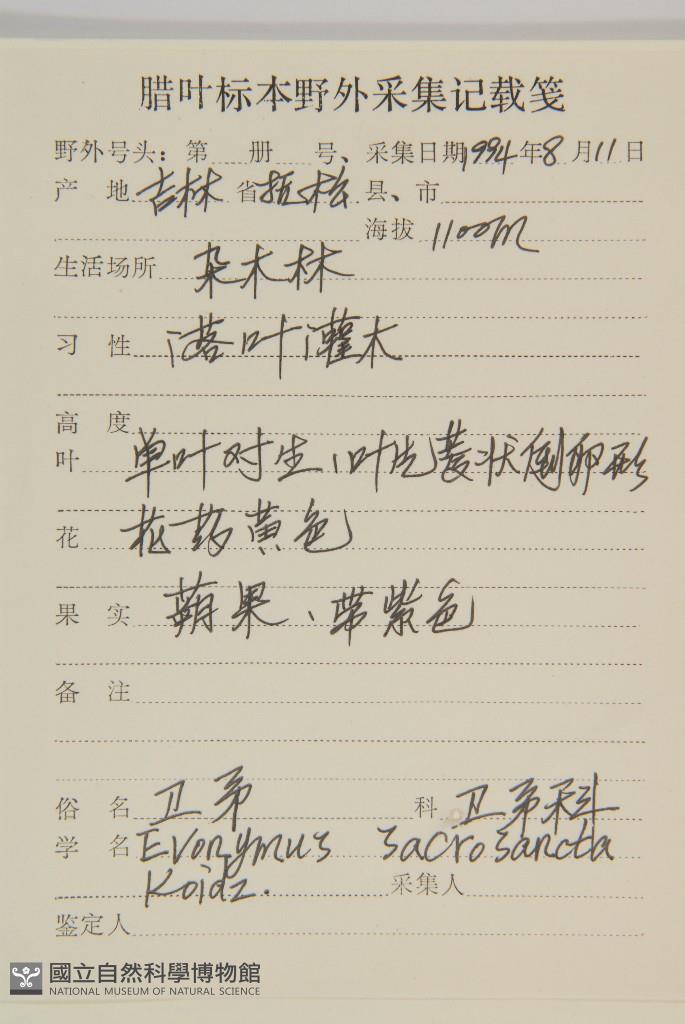 腊叶标本野外采集记载笺
野外号头：第 册 号、采集日期1994年8月11日
产 地 吉林省抚松县、市
海拔 1100m
生活场所 杂木林
习 性 落叶灌木
高 度
叶 单叶对生，叶片菱状倒卵形
花 花药黄色
果 实 蒴果、带紫色
备 注
俗 名 卫矛 科 卫矛科
学 名 Evonymus sacrosancta
Koidz. 采集人
鉴定人
國立自然科學博物館
NATIONAL MUSEUM OF NATURAL SCIENCE